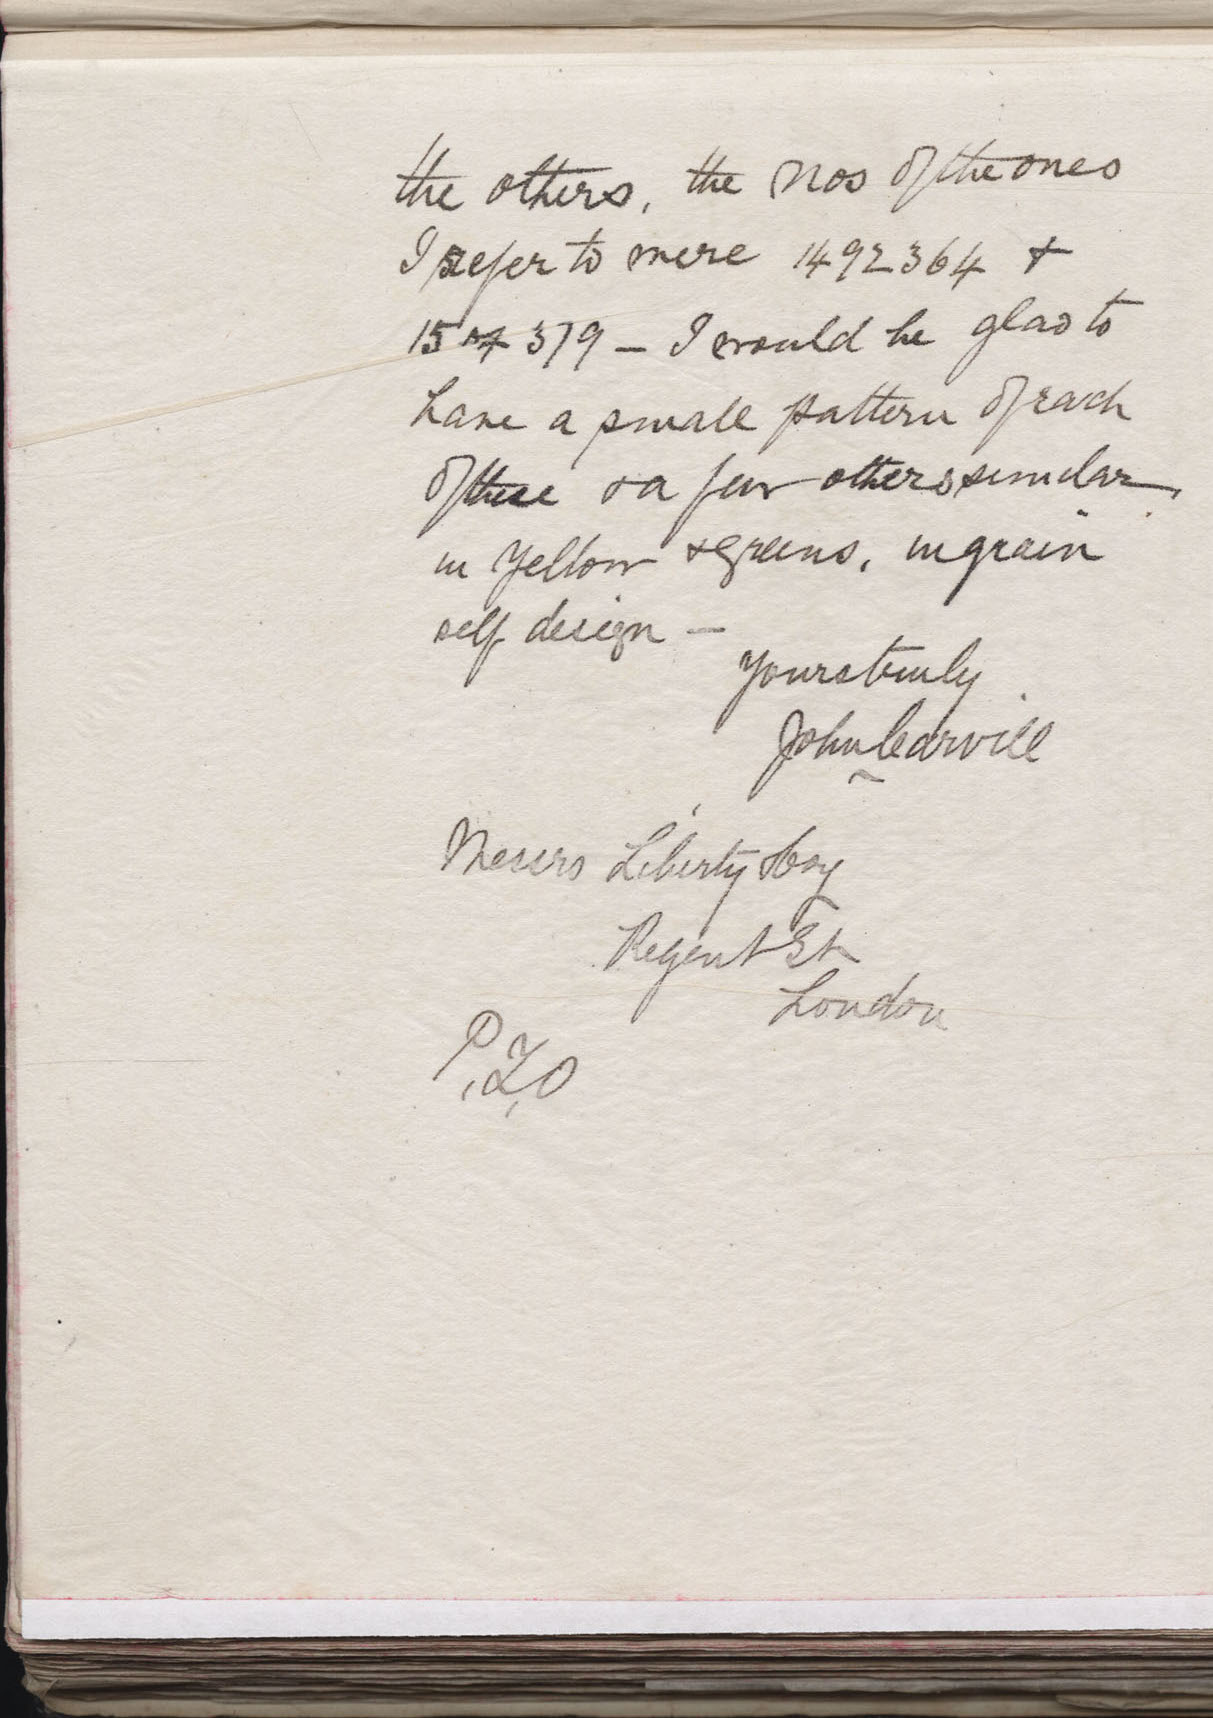 the others, the Nos of the ones
I refer to were 1492 364 &
379 – I would be glad to
have a small pattern of each
of these & a few others similar,
in Yellow & Greens, ingrain
self design –
Yours truly
John Carvill
Messrs Liberty & Coy
Regent St
London
P.T.O